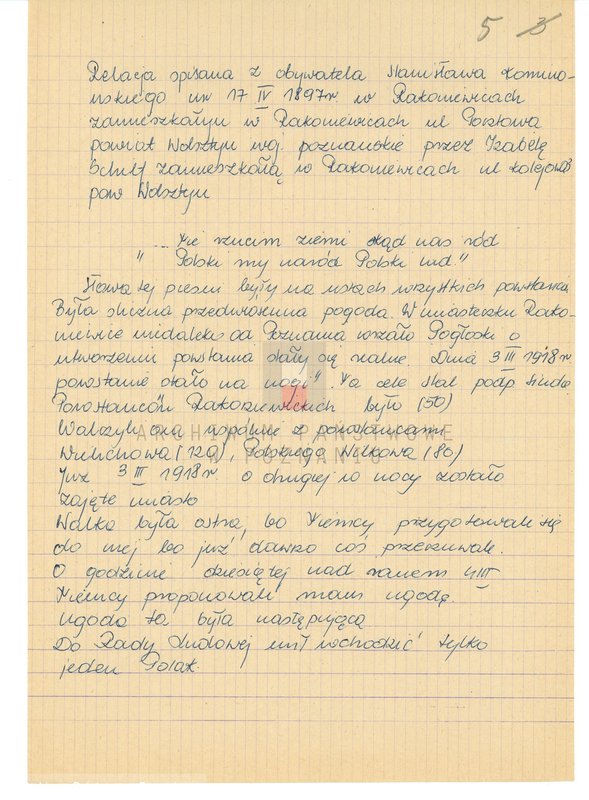 5 3
Relacja spisana z obywatela Stanisława Komino-
wskiego ur 17 IV 1897r. w Rakoniewicach
zamieszkałym w Rakoniewicach ul Pocztowa
powiat Wolsztyn woj. poznańskie przez Izabelę
Schulz zamieszkałą w Rakoniewicach ul kolejowa
pow Wolsztyn
... Nie rzucim ziemi skąd nas ród
" Polski my naród Polski lud"
Słowa tej pieśni były na ustach wszystkich powstańców
Była śliczna przedwiosenna pogoda. W miasteczku Rako-
niewice niedaleko od Poznania wrzało Pogłoski o
utworzeniu powstania stały się realne Dnia 3 III 1918r
powstanie stało na nogi". Na czele stał podp
Powstańców Rakoniewickich było (50)
Walczyli oni wspólnie z powstańcami
Wielichowa (120), Polskiego Wilkowa (80)
Już 3 III 1918r o drugiej w nocy zostało
zajęte miasto
Walka była ostra, bo Niemcy przygotowali się
do niej bo już dawno coś przeczuwali.
O godzinie dziesiątej nad ranem 4 III
Niemcy proponowali nam ugodę.
Ugoda ta była następująca
Do Rady Ludowej miał wchodzić tylko
jeden Polak.
ARCHIWUM PAŃSTWOWE
W POZNANIU